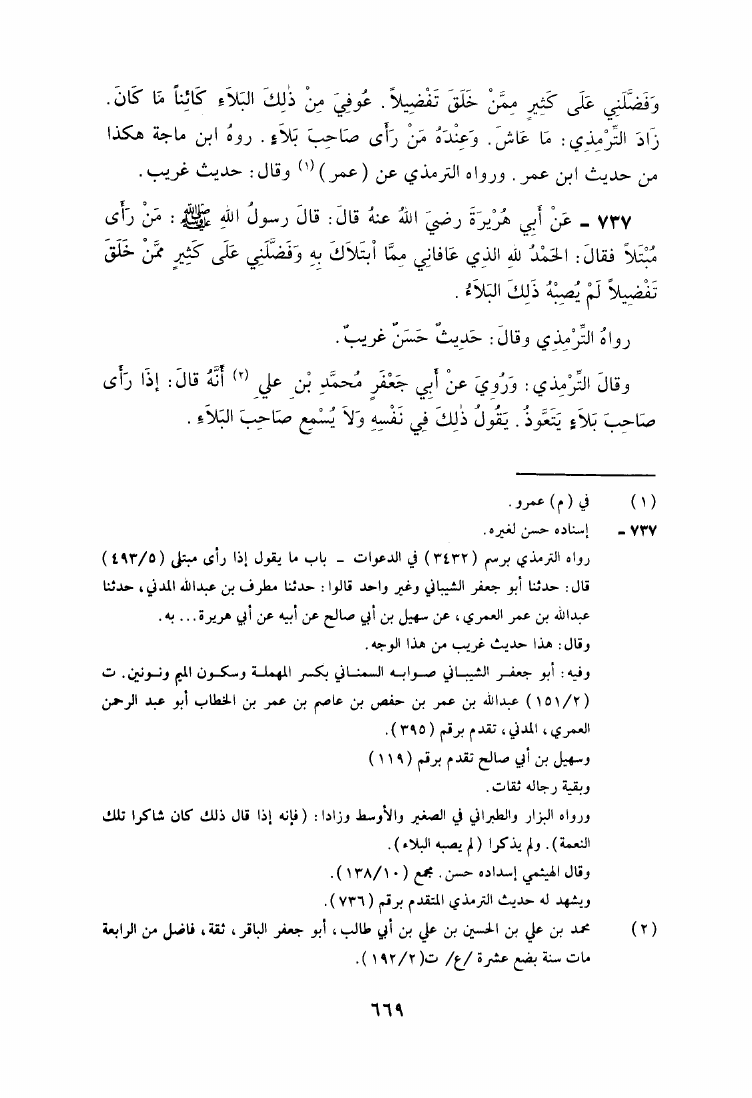 وَفَضَّلَنِي عَلَى كَثِيرٍ مِمَّنْ خَلَقَ تَفْضِيلاً. عُوفِيَ مِنْ ذٰلِكَ البَلاَءِ كَائِناً مَا كَانَ.
زَادَ التِّرْمِذِي: مَا عَاشَ. وَعِنْدَهُ مَنْ رَأَى صَاحِبَ بَلاَءٍ. روهُ ابن ماجة هكذا
من حديث ابن عمر. ورواه الترمذي عن (عمر)(١) وقال: حديث غريب.
٧٣٧ ـ عَنْ أَبِي هُرْيرَةَ رضيَ اللهُ عنهُ قالَ: قالَ رسولُ اللهِ ﷺ: مَنْ رَأى
مُبْتَلاً فقالَ: الحَمْدُ للهِ الذي عَافاني مِمَّا أبتَلاَكَ بِهِ وَفَضَّلَنِي عَلَى كَثِيرٍ ممَّنْ خَلَقَ
تَفْضِيلاً لَمْ يُصِبْهُ ذَلِكَ البَلاَءُ.
رواهُ التِّرْمِذِي وقالَ: حَدِيثٌ حَسَنٌ غريبٌ.
وقالَ التِّرْمِذِي: وَرُوِيَ عنْ أبي جَعْفَرٍ مُحمَّدِ بْنِ علي(٢) أَنَّهُ قالَ: إذَا رَأَى
صَاحِبَ بَلاَءٍ يَتَعَوَّذُ. يَقُولُ ذٰلِكَ فِي نَفْسِهِ وَلاَ يُسْمِع صَاحِبَ البَلاَءِ.
(١) في (م) عمرو.
٧٣٧ ـ إسناده حسن لغيره.
رواه الترمذي برسم (٣٤٣٢) في الدعوات - باب ما يقول إذا رأى مبتلى (٤٩٣/٥)
قال: حدثنا أبو جعفر الشيباني وغير واحد قالوا: حدثنا مطرف بن عبدالله المدني، حدثنا
عبدالله بن عمر العمري، عن سهيل بن أبي صالح عن أبيه عن أبي هريرة... به.
وقال: هذا حديث غريب من هذا الوجه.
وفيه: أبو جعفر الشيباني صوابه السمناني بكسر المهملة وسكون الميم ونونين. ت
(١٥١/٢) عبدالله بن عمر بن حفص بن عاصم بن عمر بن الخطاب أبو عبد الرحمن
العمري، المدني، تقدم برقم (٣٩٥).
وسهيل بن أبي صالح تقدم برقم (١١٩)
وبقية رجاله ثقات.
ورواه البزار والطبراني في الصغير والأوسط وزادا: (فإنه إذا قال ذلك كان شاكرا تلك
النعمة). ولم يذكرا (لم يصبه البلاء).
وقال الهيثمي إسداده حسن. مجمع (١٣٨/١٠).
ويشهد له حديث الترمذي المتقدم برقم (٧٣٦).
(٢) محمد بن علي بن الحسين بن علي بن أبي طالب، أبو جعفر الباقر، ثقة، فاضل من الرابعة
مات سنة بضع عشرة /ع/ ت(١٩٢/٢).
٦٦٩